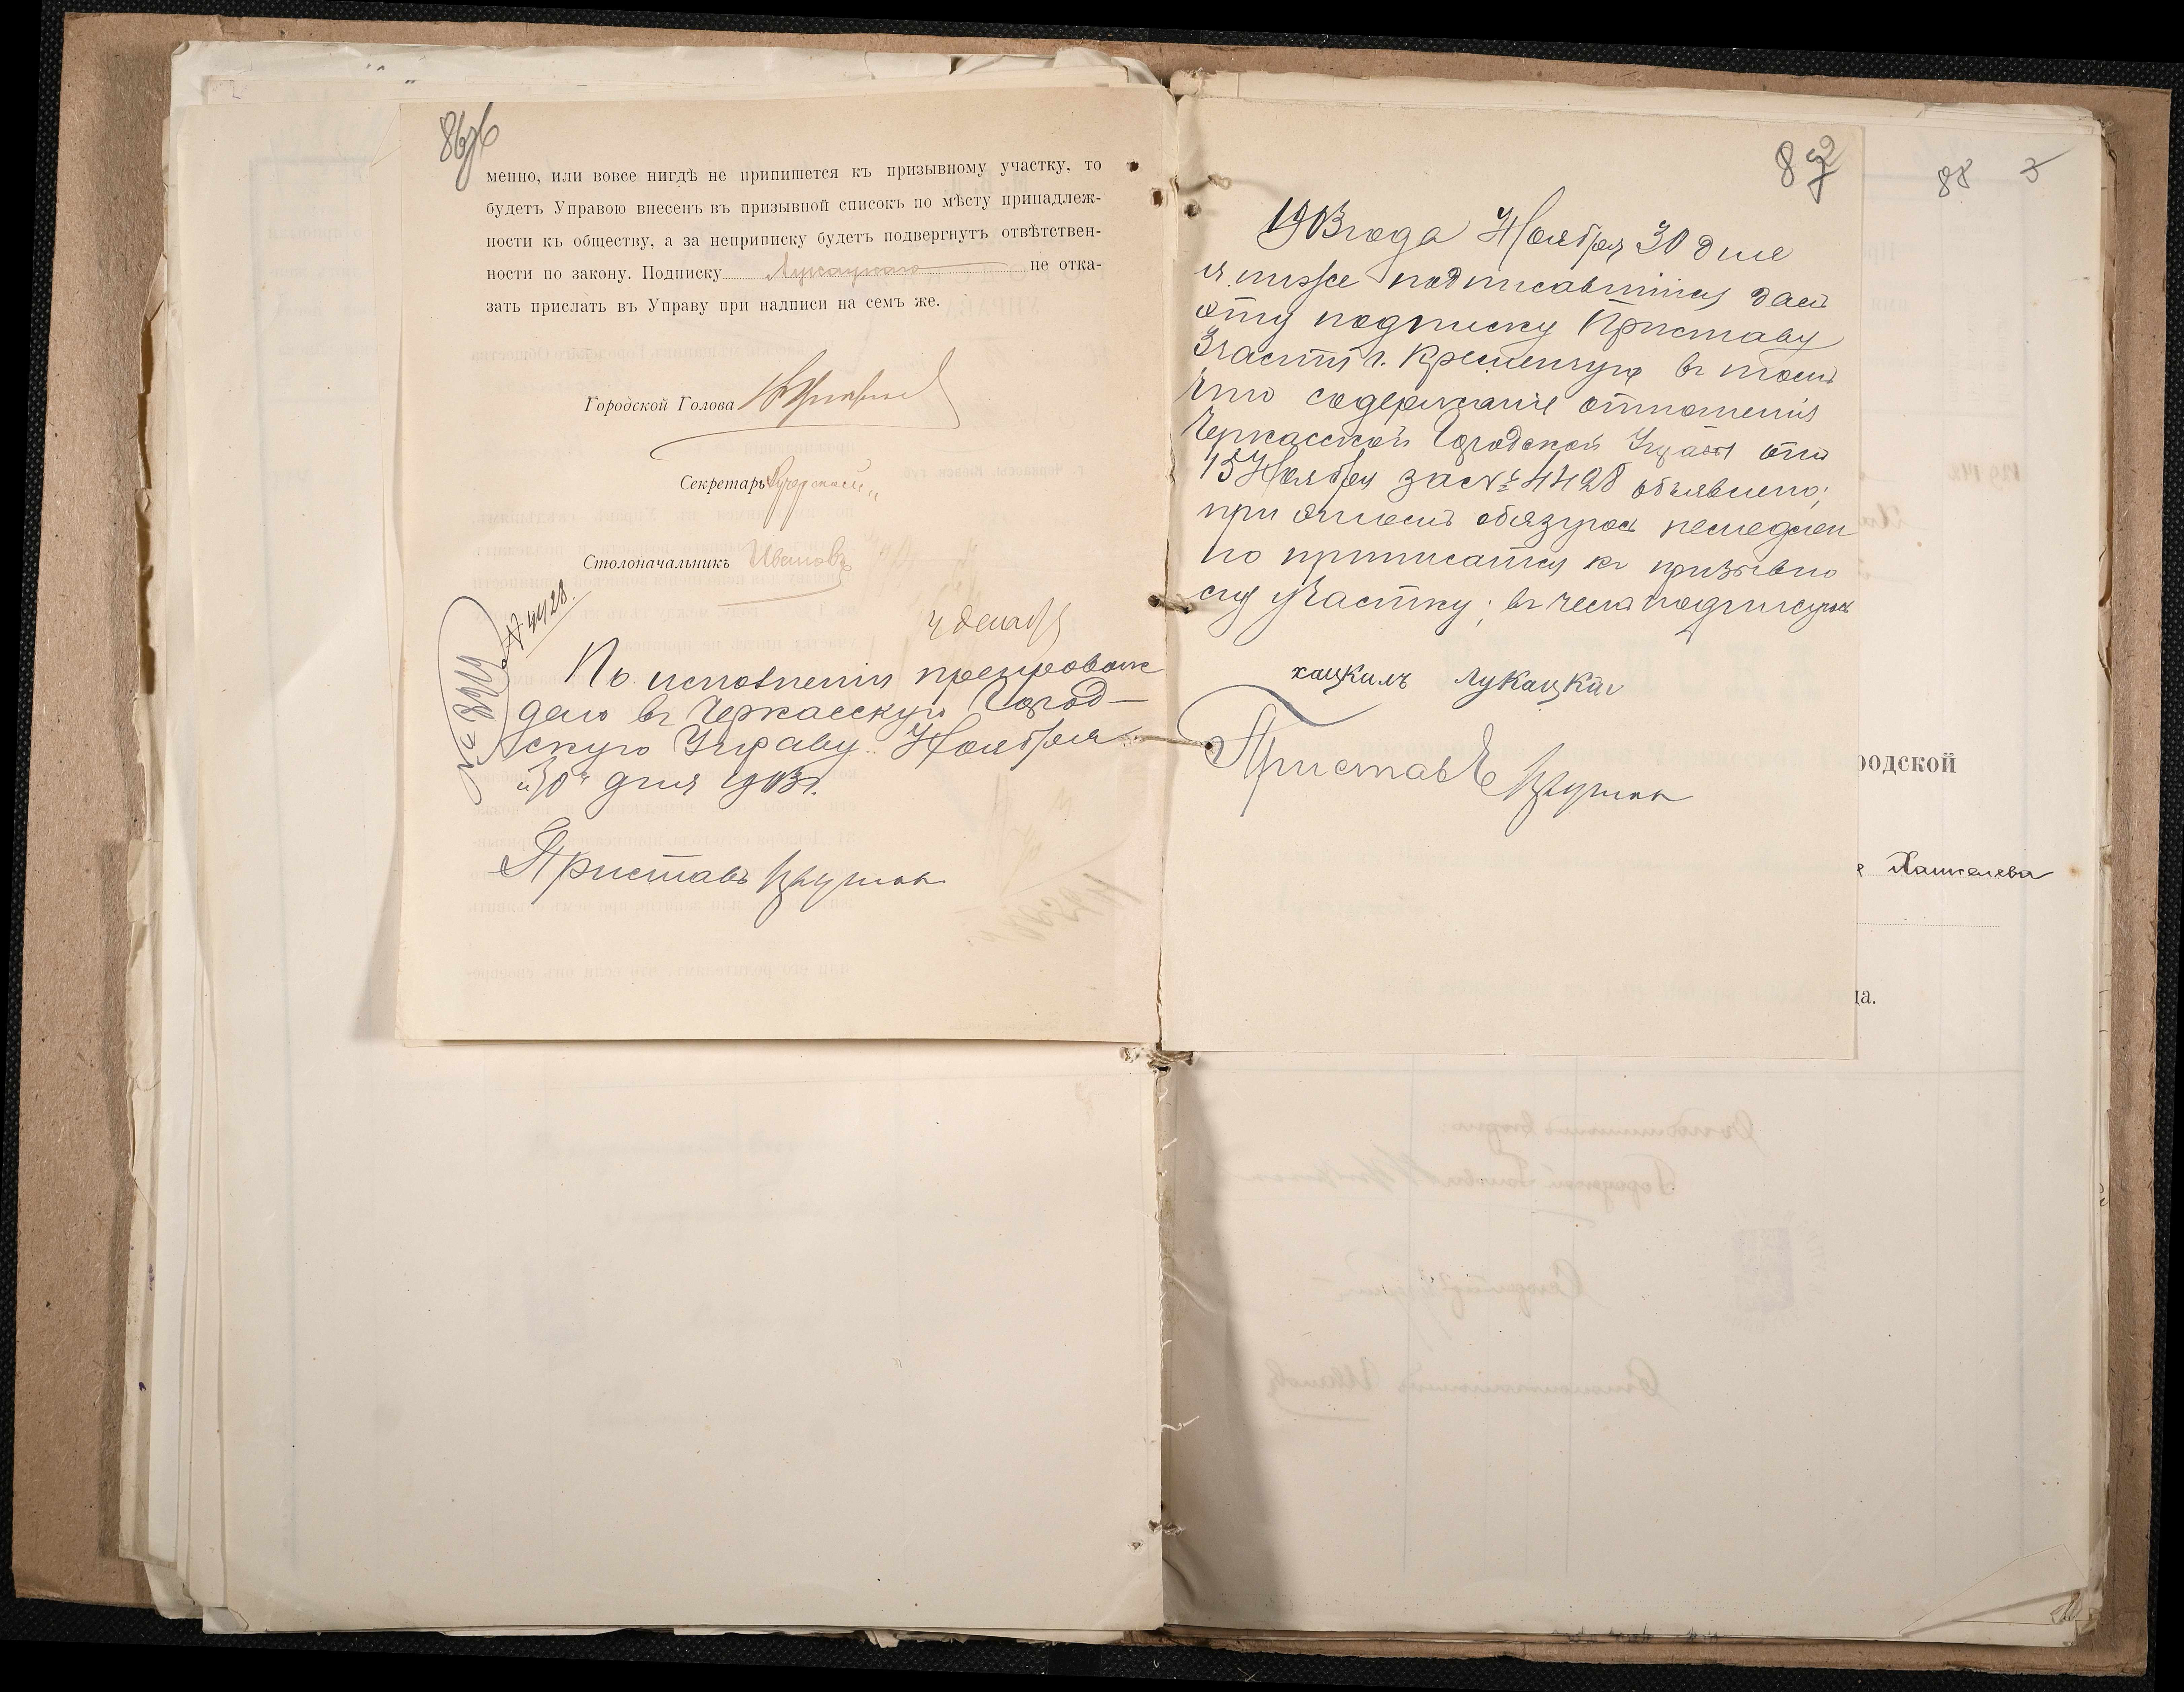 86об
менно, или вовсе нигдѣ не припишется къ призывному участку, то
будетъ Управою внесенъ въ призывной списокъ по мѣсту принадлеж-
ности къ обществу, а за неприписку будетъ подвергнутъ отвѣтствен-
ности по закону. Подписку Лукацкаго не отка-
зать прислать въ Управу при надписи на семъ же.
Городской Голова
Секретарь
Столоначальникъ Ивановъ
№ 4428
4 декаб
По исполненіи препровож
дено въ Черкасскую Город-
скую Управу. Ноября
„30“ дня 1903 г.
Приставъ
87
1903 года Ноября 30 дня
я ниже подписавшійся далъ
эту подписку Приставу
3 части г. Кременчуга въ томъ
что содержаніе отношенія
Черкасской Городской Управы отъ
15 Ноября за № 4428 объявлено;
при этомъ обязуюсь немедлен
но приписаться къ призывно
му участку; въ чемъ подписуюсь
хацкилъ лукацкій
Приставъ
88 3
родской
Хацкелева
да.